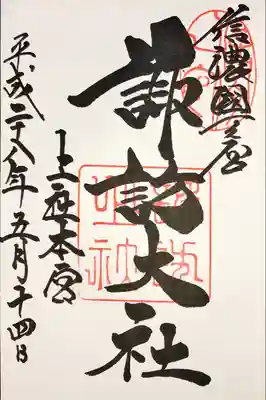 信濃國一之宮
諏訪大社
上社本宮
平成二十八年五月十四日